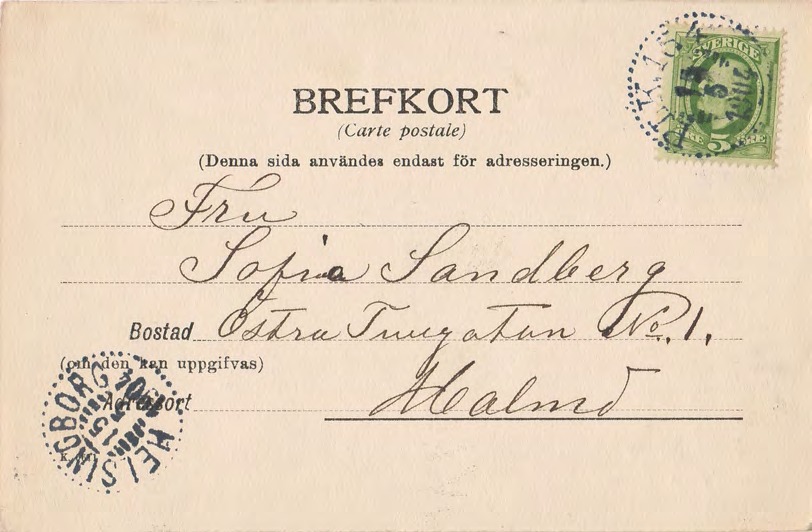 BREFKORT
(Carte postale)
(Denna sida användes endast för adresseringen.)
SVERIGE
5
Fru
Sofia Sandberg
Bostad Östra No. 1.
(om den kan uppgifvas)
Adressort Malmö
HELSINGBORG